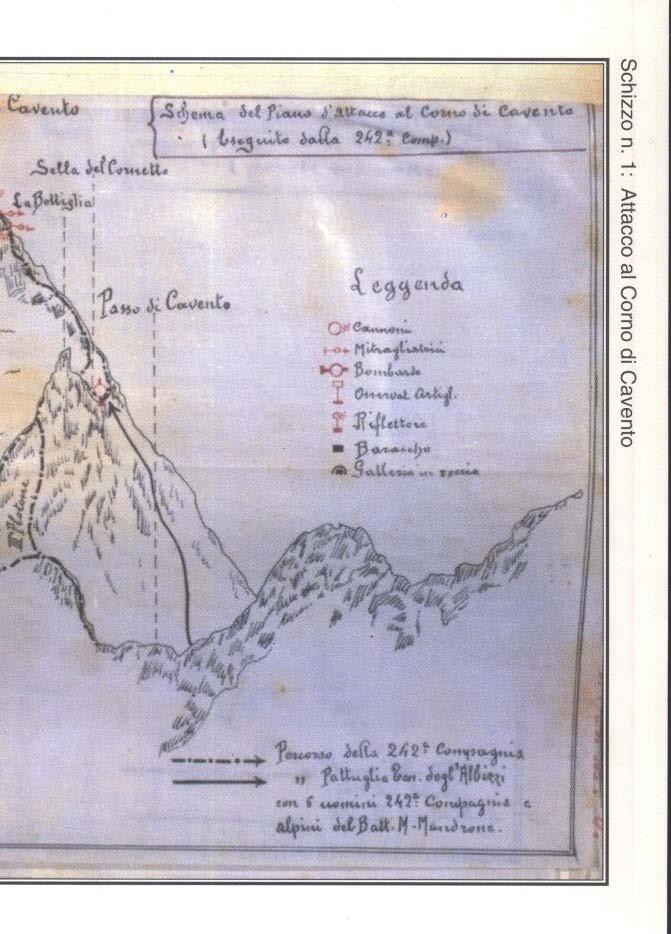 Schizzo n. 1: Attacco al Corno di Cavento
Cavento
Schema del Piano d'attacco al Corno di Cavento
( Eseguito dalla 242ª Comp.)
Sella del Cornetto
La Bottiglia
Passo di Cavento
Leggenda
Cannoni
Mitragliatrici
Bombarde
Osservat. Artigl.
Riflettore
Baracche
Galleria in roccia
II° Plotone
Percorso della 242ª Compagnia
" Pattuglia Ten. degl'Albizzi
con 6 uomini 242ª Compagnia e
alpini del Batt. M. Mandrone.